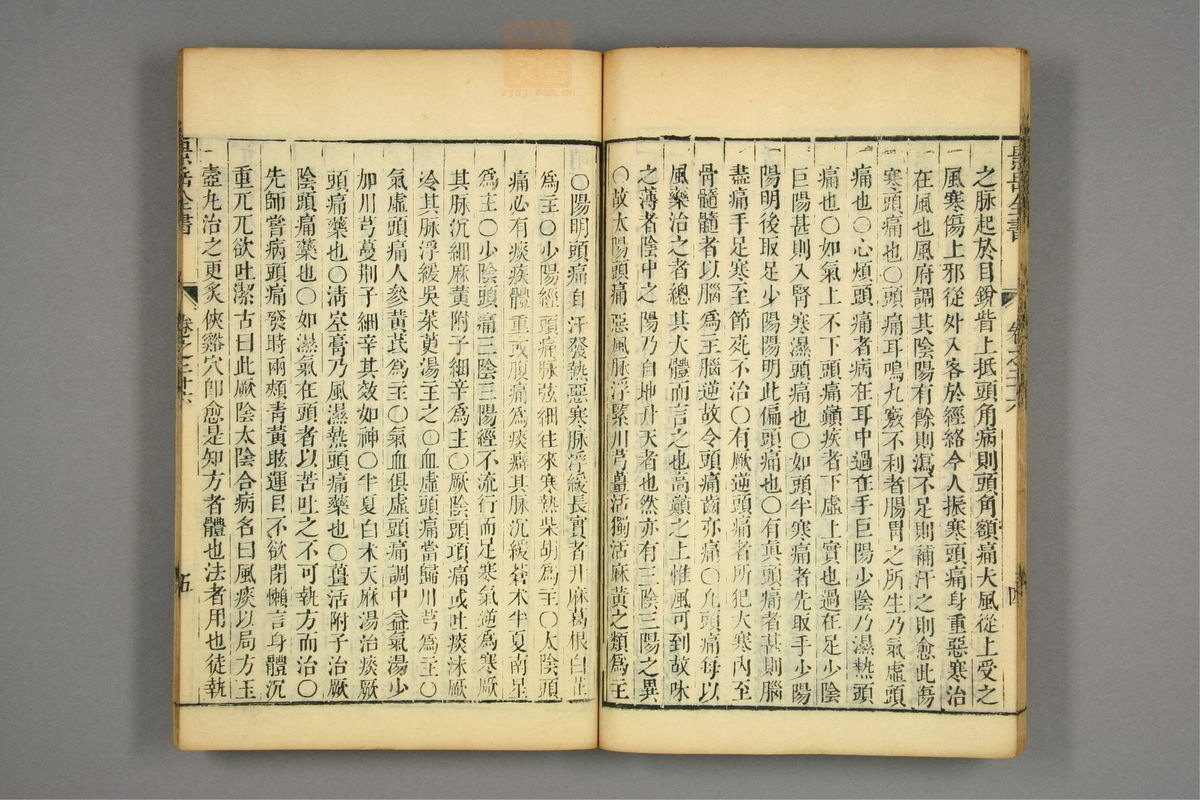 之脉起於目銳眥上抵頭角病則頭角額痛大風從上受之
風寒傷上邪從外入客於經絡令人振寒頭痛身重惡寒治
在風池風府調其陰陽有餘則瀉不足則補汗之則愈此傷
寒頭痛也〇頭痛耳鳴九竅不利者腸胃之所生乃氣虛頭
痛也〇心煩頭痛者病在耳中過在手巨陽少陰乃濕熱頭
痛也〇如氣上不下頭痛巔疾者下虛上實也過在足少陰
巨陽甚則入腎寒濕頭痛也〇如頭半寒痛者先取手少陽
陽明後取足少陽陽明此偏頭痛也〇有眞頭痛者甚則腦
盡痛手足寒至節死不治〇有厥逆頭痛者所犯大寒內至
骨髓髓者以腦爲主腦逆故令頭痛齒亦痛〇凡頭痛每以
風藥治之者總其大體而言之也高巔之上惟風可到故味
之薄者陰中之陽乃自地升天者也然亦有三陰三陽之異
〇故太陽頭痛惡風脉浮緊川芎羌活獨活麻黃之類爲主
〇陽明頭痛自汗發熱惡寒脉浮緩長實者升麻葛根白芷
爲主〇少陽經頭痛脉弦細往來寒熱柴胡爲主〇太陰頭
痛必有痰疾體重或腹痛爲痰癖其脉沉緩蒼术半夏南星
爲主〇少陰頭痛三陰三陽經不流行而足寒氣逆爲寒厥
其脉沉細麻黃附子細辛爲主〇厥陰頭項痛或吐痰沫厥
冷其脉浮緩吳茱萸湯主之〇血虛頭痛當歸川芎爲主〇
氣虛頭痛人參黃芪爲主〇氣血俱虛頭痛調中益氣湯少
加川芎蔓荆子細辛其效如神〇半夏白术天麻湯治痰厥
頭痛藥也〇淸空膏乃風濕熱頭痛藥也〇羌活附子治厥
陰頭痛藥也〇如濕氣在頭者以苦吐之不可執方而治〇
先師嘗病頭痛發時兩頰靑黃眩運目不欲閉懶言身體沉
重兀兀欲吐潔古曰此厥陰太陰合病名曰風痰以局方玉
壼丸治之更炙俠谿穴卽愈是知方者體也法者用也徒執
景岳全書
卷之二十六
四
景岳全書
卷之二十六
五
zysj.com.cn